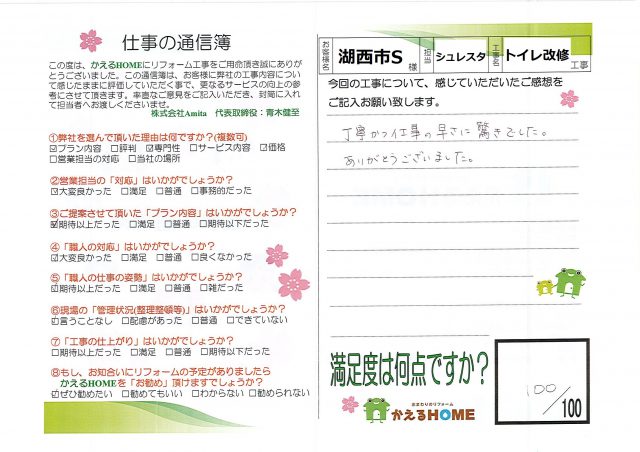 仕事の通信簿
この度は、かえるHOMEにリフォーム工事をご用命頂き誠にありが
とうございました。この通信簿は、お客様に弊社の工事内容につい
て感じたままに評価していただく事で、更なるサービスの向上の参
考にさせて頂きます。率直なご意見をご記入いただき、封筒に入れ
て担当者へお渡しくださいませ。
株式会社Amita 代表取締役:青木健至
①弊社を選んで頂いた理由は何ですか?(複数可)
☑プラン内容 □評判 ☑専門性 □サービス内容 ☑価格
□営業担当の対応 □当社の場所
②営業担当の「対応」はいかがでしょうか?
☑大変良かった □満足 □普通 □事務的だった
③ご提案させて頂いた「プラン内容」はいかがでしょうか?
☑期待以上だった □満足 □普通 □期待以下だった
④「職人の対応」はいかがでしょうか?
☑大変良かった □満足 □普通 □良くなかった
⑤「職人の仕事の姿勢」はいかがでしょうか?
☑期待以上だった □満足 □普通 □雑だった
⑥現場の「管理状況(整理整頓等)」はいかがでしょうか?
☑言うことなし □配慮があった □普通 □できていない
⑦「工事の仕上がり」はいかがでしょうか?
□期待以上だった □満足 □普通 □期待以下だった
⑧もし、お知合いにリフォームの予定がありましたら
かえるHOMEを「お勧め」頂けますでしょうか?
☑ぜひ勧めたい □勧めてもいい □わからない □勧められない
お客様名 湖西市S 様 担当 シュレスタ 工事名 トイレ改修 工事
今回の工事について、感じていただいたご感想を
ご記入お願い致します。
丁寧かつ仕事の早さに驚きでした。
ありがとうございました。
満足度は何点ですか?
100/100
水まわりのリフォーム
かえるHOME